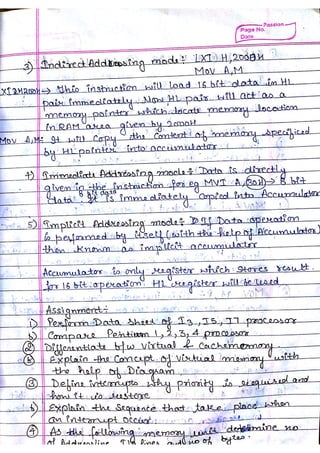 Page No.
Date
3) Indirect Addressing mode: LXI H, 2000H
MOV A,M
LXI H 2000H → This instruction will load 16 bit data in HL
pair immediately. Now HL pair will act as a
memory pointer which locate memory location
in RAM area given by 2000H
MOV A,M: It will Copy the content of memory specified
by HL pointer into accumulator
4) Immediate Addressing mode: Data is directly
given in the instruction for eg MVI A, 30H → 8 bit
data 8 bit data It is immediately Copied into Accumulator
5) Implicit Addressing mode: If Data operation
is performed by itself (with the help of Accumulator)
then known as implicit accumulator
Accumulator is only register which stores result.
for 16 bit operation HL register will be used
Assignment:
① Perform Data sheet of I3, I5, I7 processor
b) Compare Pentium 1, 2, 3, 4 processor
② Differentiate b/w Virtual & Cachememory
b) Explain the Concept of Virtual memory with
the help of Diagram
③ Define interrupts why priority is required and
how it is restore
b) Explain the Sequence that take place when
an interrupt occur
④ As the following memory unit determine no
of Addressing lines and no of bytes.